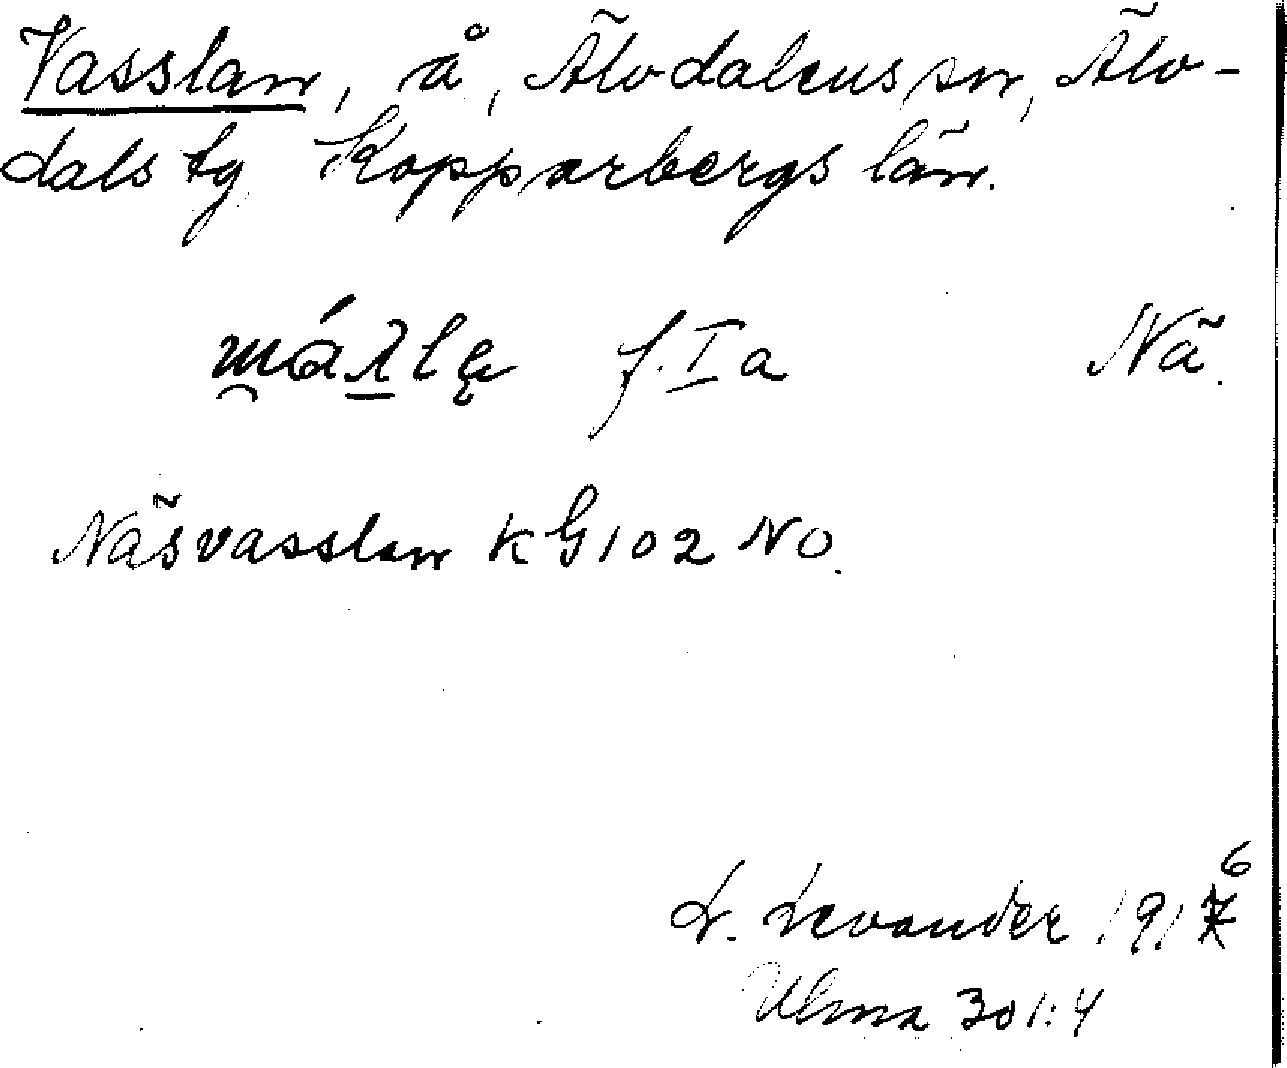 Vasslan, å, Älvdalens sn, Älv-
dals tg Kopparbergs län.
f. I a Nä.
Näsvasslan KG 102 NO.
L. Levander 1916
Ulma 301:4